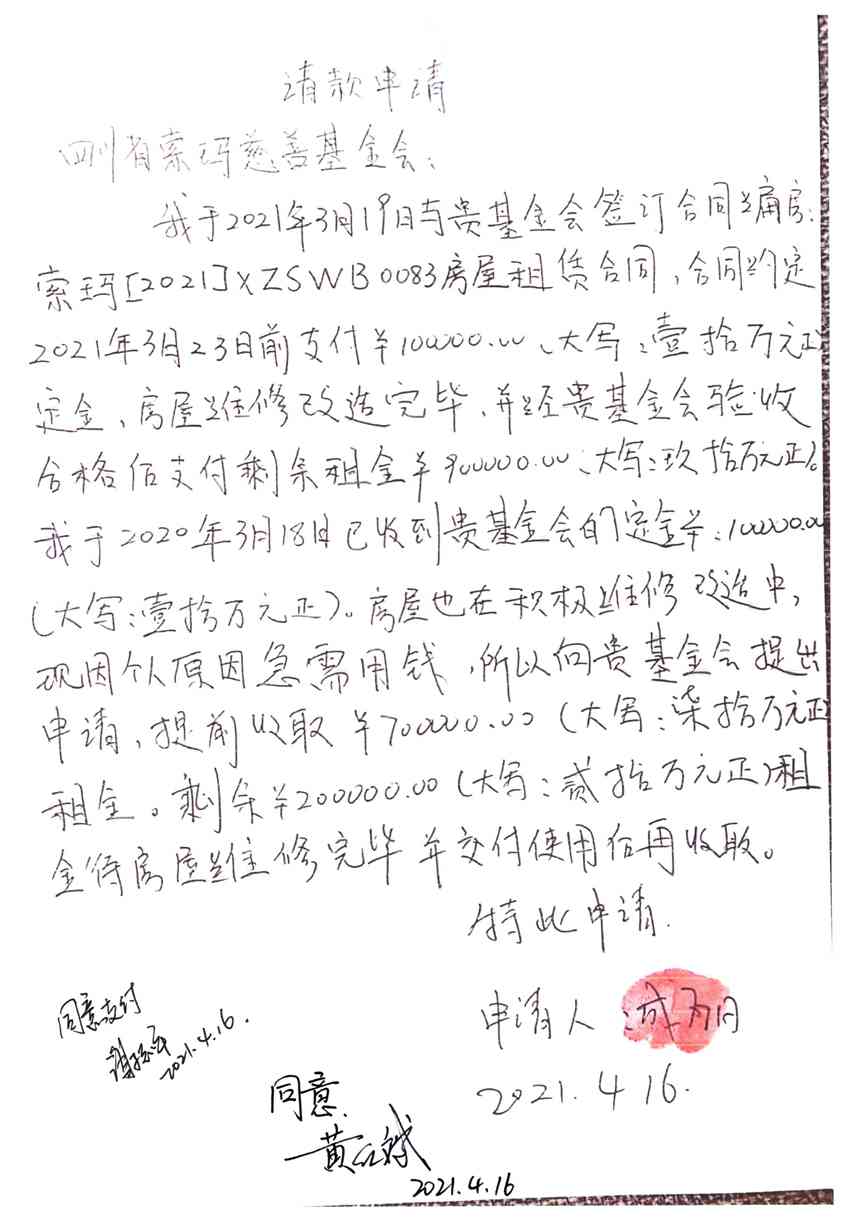 请款申请
四川省索玛慈善基金会：
我于2021年3月19日与贵基金会签订合同编房:
索玛[2021]XZSWB0083房屋租赁合同，合同约定
2021年3月23日前支付￥100000.00、大写：壹拾万元正
定金、房屋维修改造完毕、并经贵基金会验收
合格后支付剩余租金￥900000.00（大写：玖拾万元正）。
我于2020年3月18日已收到贵基金会的定金￥:100000.00
（大写：壹拾万元正）。房屋也在积极维修改造中，
现因个人原因急需用钱，所以向贵基金会提出
申请、提前收取￥700000.00（大写：柒拾万元正
租金。剩余￥200000.00（大写：贰拾万元正）租
金待房屋维修完毕并交付使用后再收取。
特此申请.
申请人
2021.4 16.
同意支付
2021.4.16.
同意.
黄红斌
2021.4.16